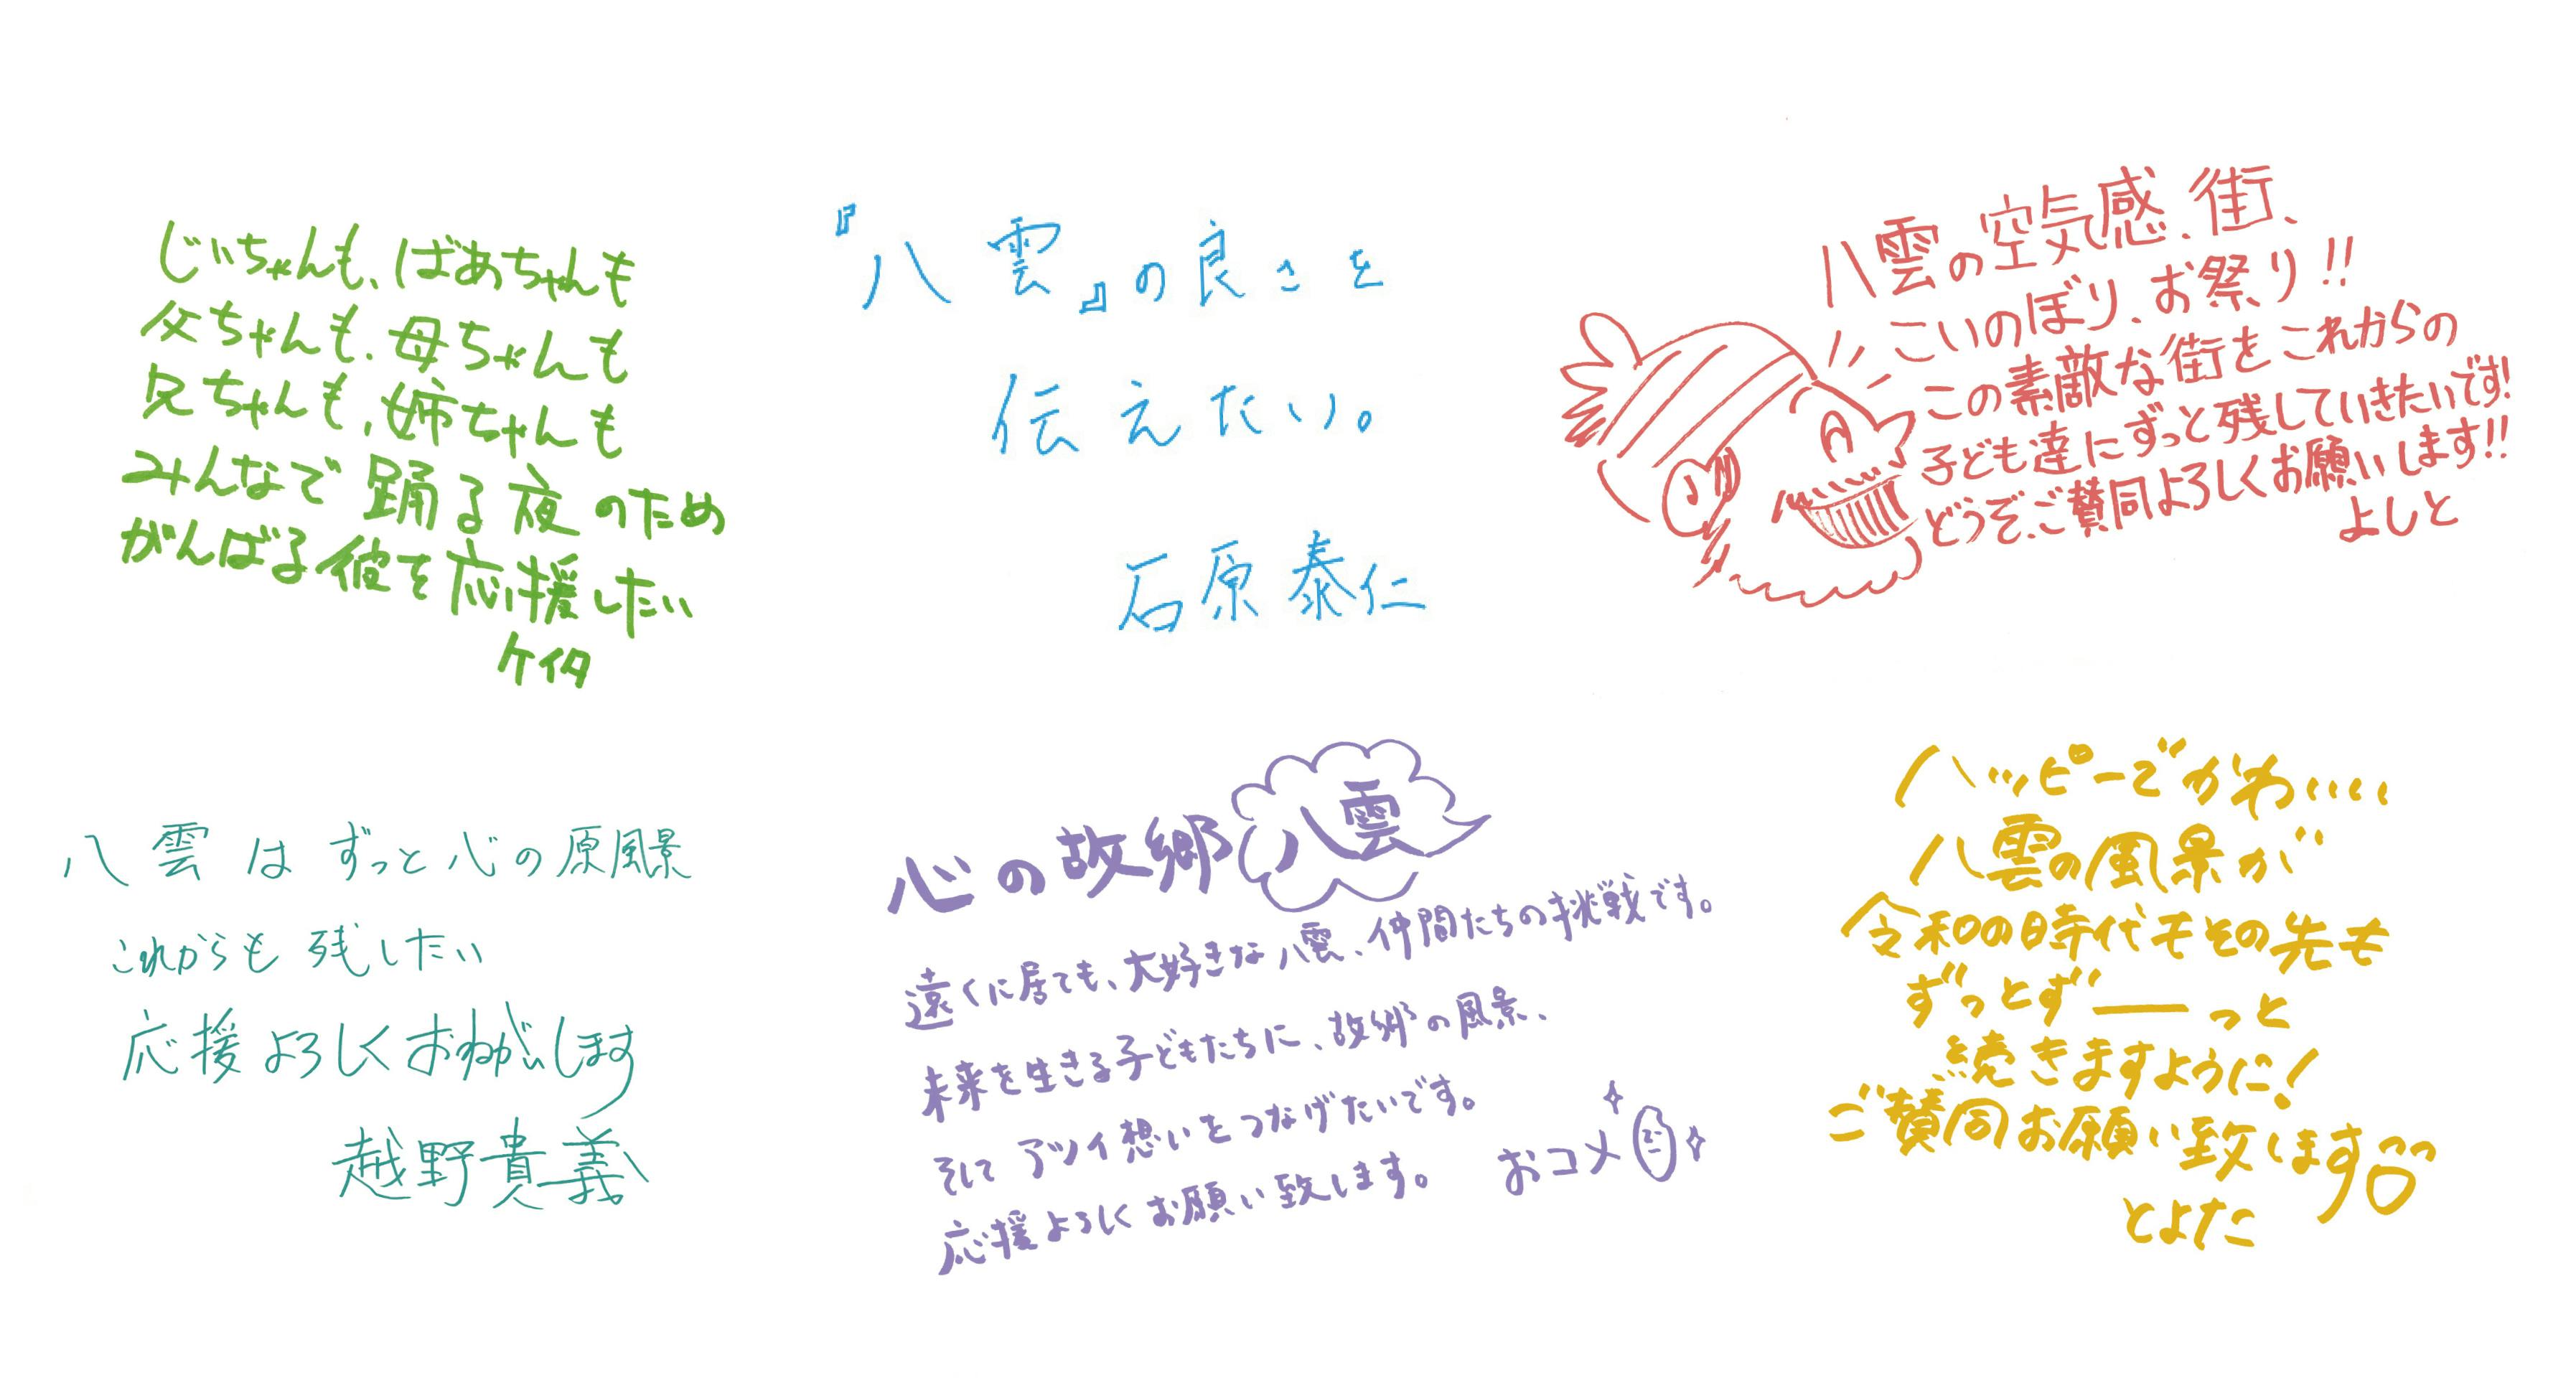 じいちゃんも、ばあちゃんも
父ちゃんも、母ちゃんも
兄ちゃんも、姉ちゃんも
みんなで踊る夜のため
がんばる彼を応援したい
ケイタ
『八雲』の良さを
伝えたい。
石原泰仁
八雲の空気感、街、
こいのぼり、お祭り!!
この素敵な街をこれからの
子ども達にずっと残していきたいです!
どうぞ、ご賛同よろしくお願いします!!
よしと
八雲はずっと心の原風景
これからも残したい
応援よろしくおねがいします
越野貴義
心の故郷八雲
遠くに居ても、大好きな八雲、仲間たちの挑戦です。
未来を生きる子どもたちに、故郷の風景、
そしてアツイ想いをつなげたいです。
応援よろしくお願い致します。
おコメ
ハッピーでかわ‥‥
八雲の風景が
令和の時代もその先も
ずっとずーっと
続きますように!
ご賛同お願い致します
とよた